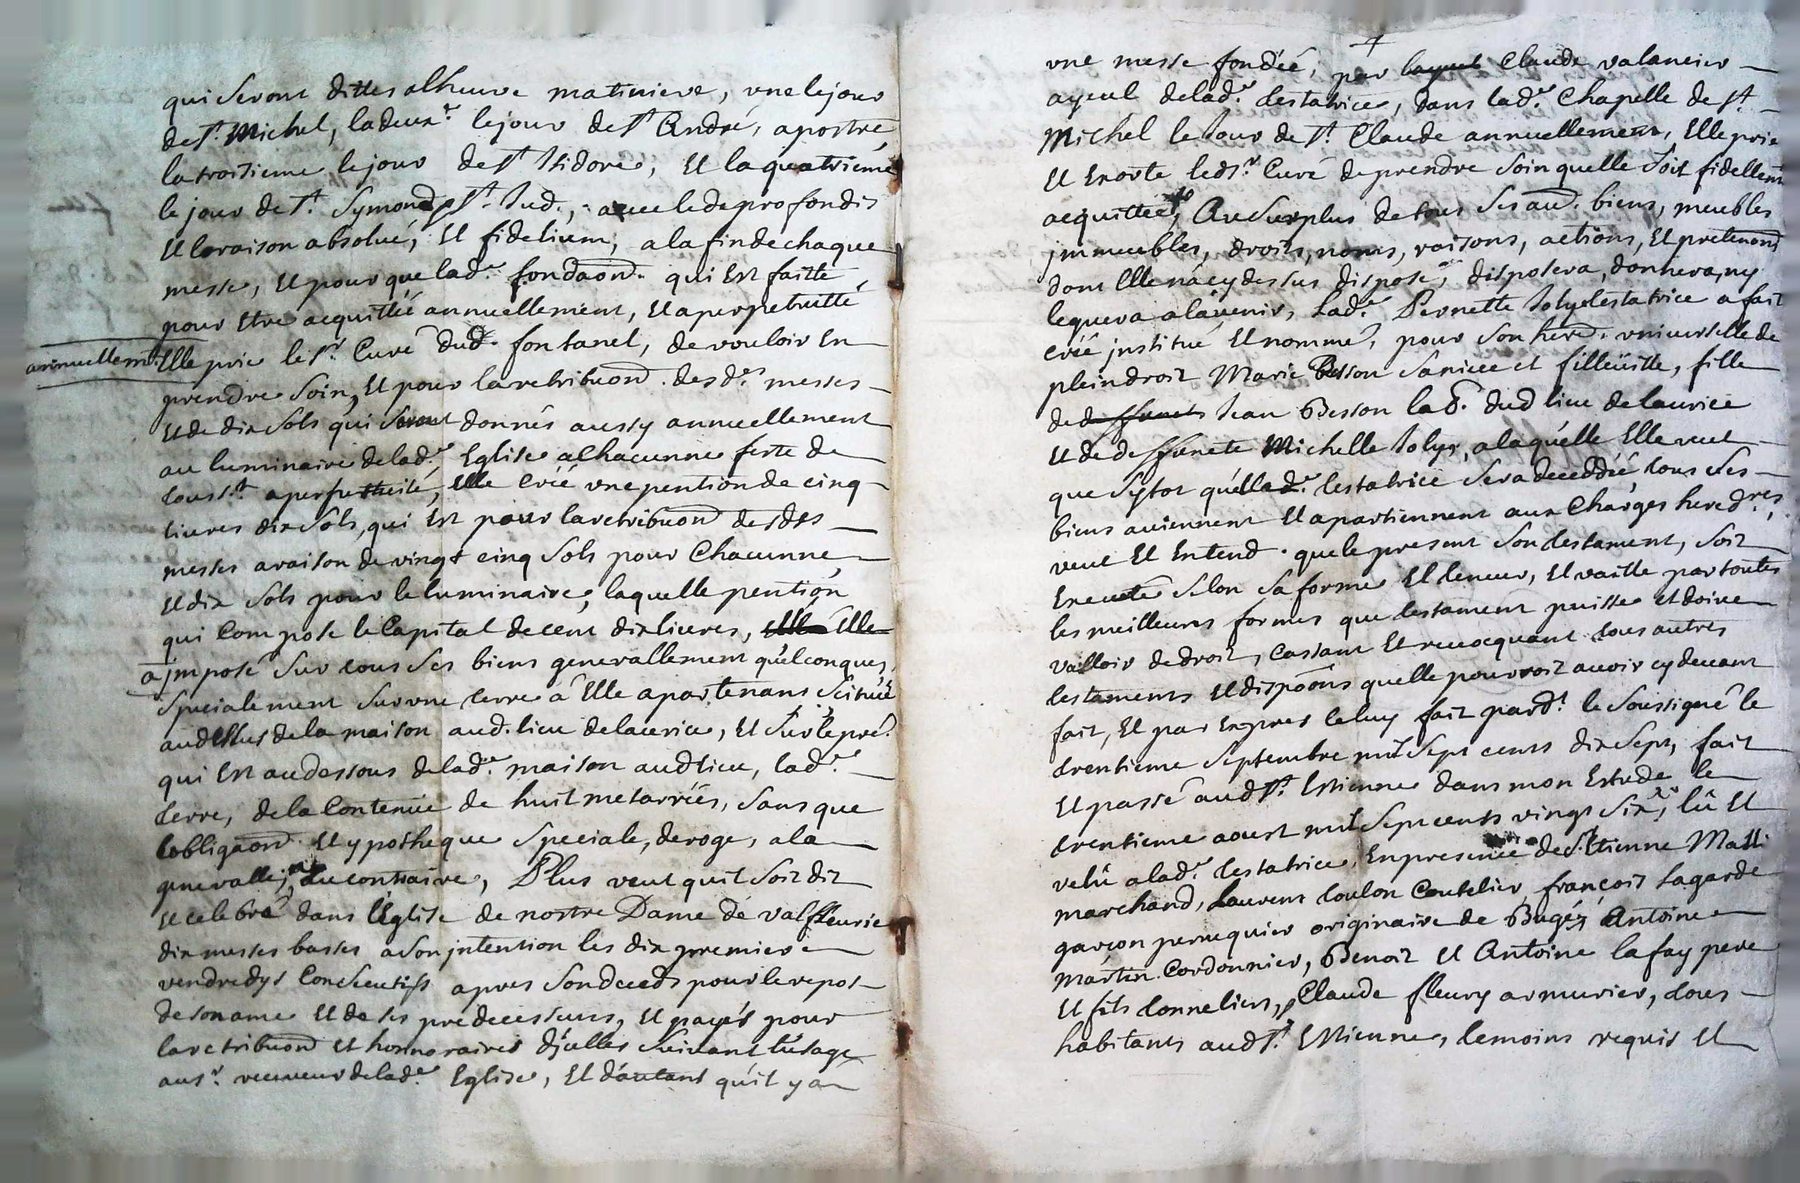 qui seront dittes alheure matiniere, une lejour
de St. Michel, ladeuxe. lejour de St André, apostre
la troisieme lejour de St Isidore, Et la quatrieme
le jour de St. Symond St. Jud., avec le de profondis
Et loraison absolué, Et fidelium, a la fin de chaque
messe, Et pour que lad.e fondaon. qui Est faitte
pour Etre acquittée annuellement, Et a perpetuitté
annuellemt. Elle prie le Sr. Curé dud. fontanel, de vouloir En
prendre soin, Et pour la retribuon. desd.es messes
Et de dix sols qui seront donnés aussy annuellement
au luminaire delad.e Eglise alhacunne feste de
touss.t a perpetuité, Elle créé une pention de cinq
livres dix sols, qui Est pour la retribuon desdtes
messes a raison de vingt cinq sols pour Chacunne,
Et dix sols pour le luminaire, laquelle pention
qui Compose le Capital de cent dix livres, Elle
a jmposé sur tous ses biens generallement quelconques,
specialement sur une terre a Elle apartenans Scituée
audessus de la maison aud. lieu delaurice, Et sur le pré
qui Est audessous delad.e maison audlieu, lad.e
terre, de la Contenüe de huit metarrées, sans que
lobligaon. Et ypotheque speciale, deroge, a la
generalle, ny au contraire, Plus veut quil soit dit
Et celebré dans lEglise de nostre Dame de valfleurie
dix messes basses a son jntention les dix premiers
vendredys Consecutifs apres son deceds pour le repos
de son ame Et de ses predecesseurs, Et payés pour
la retribuon Et honnoraires djcelles suivant l'usage
aux Srs. delad.e Eglise, Et d'autant qu'il y a
une messe fondée, par Claude valancier
ayeul delad.e testatrice, dans lad.e Chapelle de St.
Michel le Jour de St. Claude annuellement, Elle prie
Et Exorte ledSr. Curé de prendre soin quelle soit fidellemt
acquittée, Au surplus de tous ses au. biens, meubles
jmmeubles, droits, noms, raisons, actions, Et pretenons
dont Elle n'a cy dessus disposé, disposera, donnera, ny
leguera a l'avenir, Lad.e Pernette Joly testatrice a fait
créé jnstitué Et nommé, pour son hered. universelle de
plein droit Marie Besson sa niece et filleüille, fille
de Jean Besson dud lieu delaurice
Et de deffuncte Michelle Joly, a laquelle Elle veut
que sytot quellad.e testatrice sera decedée, tous ses
biens aviennent Et apartiennent aux Charges hered.res,
veut Et Entend. que le present son testament, soit
Executé selon sa forme Et teneur, Et vaille par toutes
les meilleures formes que testament puisse et doive
valloir de droit, Cassant Et revocquant tous autres
testaments Et dispoons quelle pourroit avoir cy devant
fait, Et par Expres celuy fait pard.t le soussigné le
trentieme Septembre mil sept cents dix sept, fait
Et passé audSt. Estienne dans mon Estude le
trentieme aoust mil sept cents vingt six, lû Et
relû a lad.e testatrice, En presence de Sr. Etienne
marchand, Laurens toulon Coutelier, françois Lagarde
garçon peruquier originaire de Bugéz, Antoine
Martin Cordonnier, Benoit Et Antoine lafay pere
Et fils tonneliers, Claude fleury armurier, tous
habitants audSt. Estienne, temoins requis Et